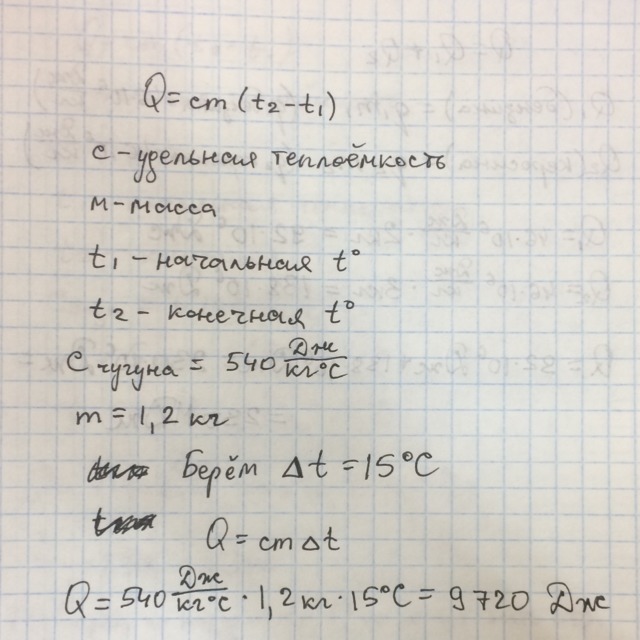 Q = cm (t₂ - t₁)
c - удельная теплоёмкость
м - масса
t₁ - начальная t°
t₂ - конечная t°
C чугуна = 540 Дж/кг°С
m = 1,2 кг
Берём Δt = 15°C
Q = cmΔt
Q = 540 Дж/кг°С · 1,2 кг · 15°С = 9720 Дж